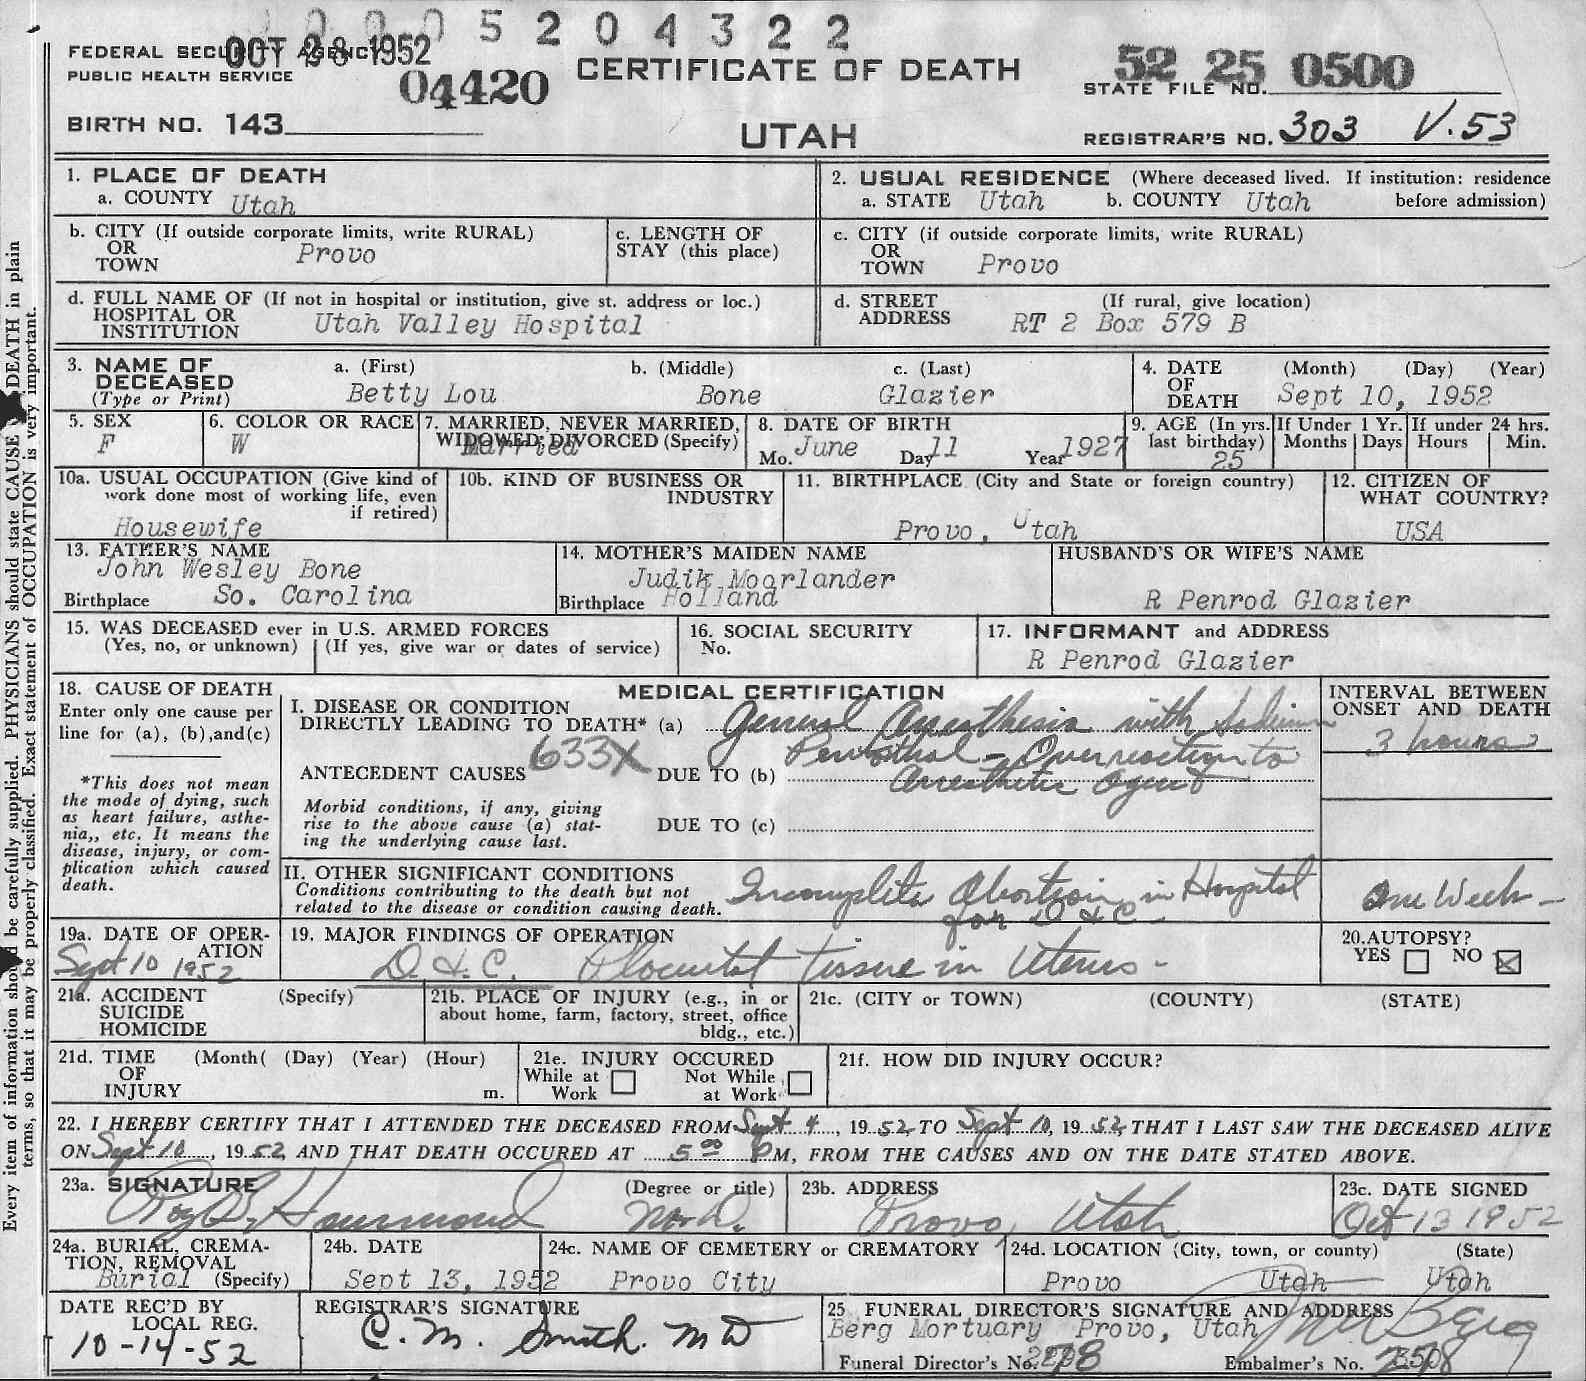 0005204322
FEDERAL SECURITY AGENCY OCT 28 1952
PUBLIC HEALTH SERVICE 04420
CERTIFICATE OF DEATH
UTAH
52 25 0500
STATE FILE NO.
BIRTH NO. 143
REGISTRAR'S NO. 303 V.53
1. PLACE OF DEATH
a. COUNTY Utah
2. USUAL RESIDENCE (Where deceased lived. If institution: residence before admission)
a. STATE Utah b. COUNTY Utah
b. CITY (If outside corporate limits, write RURAL)
OR
TOWN Provo
c. LENGTH OF
STAY (this place)
c. CITY (if outside corporate limits, write RURAL)
OR
TOWN Provo
d. FULL NAME OF (If not in hospital or institution, give st. address or loc.)
HOSPITAL OR
INSTITUTION Utah Valley Hospital
d. STREET (If rural, give location)
ADDRESS RT 2 Box 579 B
3. NAME OF DECEASED
(Type or Print)
a. (First) b. (Middle) c. (Last)
Betty Lou Bone Glazier
4. DATE OF DEATH (Month) (Day) (Year)
Sept 10, 1952
5. SEX
F
6. COLOR OR RACE
W
7. MARRIED, NEVER MARRIED,
WIDOWED, DIVORCED (Specify)
Married
8. DATE OF BIRTH
Mo. June Day 11 Year 1927
9. AGE (In yrs. last birthday)
25
If Under 1 Yr.
Months Days
If under 24 hrs.
Hours Min.
10a. USUAL OCCUPATION (Give kind of
work done most of working life, even
if retired)
Housewife
10b. KIND OF BUSINESS OR
INDUSTRY
11. BIRTHPLACE (City and State or foreign country)
Provo, Utah
12. CITIZEN OF
WHAT COUNTRY?
USA
13. FATHER'S NAME
John Wesley Bone
Birthplace So. Carolina
14. MOTHER'S MAIDEN NAME
Judik Moorlander
Birthplace Holland
HUSBAND'S OR WIFE'S NAME
R Penrod Glazier
15. WAS DECEASED ever in U.S. ARMED FORCES
(Yes, no, or unknown) (If yes, give war or dates of service)
16. SOCIAL SECURITY
No.
17. INFORMANT and ADDRESS
R Penrod Glazier
18. CAUSE OF DEATH
Enter only one cause per
line for (a), (b), and (c)
*This does not mean
the mode of dying, such
as heart failure, asthe-
nia,, etc. It means the
disease, injury, or com-
plication which caused
death.
MEDICAL CERTIFICATION
I. DISEASE OR CONDITION
DIRECTLY LEADING TO DEATH* (a) General Anesthesia with Sodium
Pentothal - Overreaction to
ANTECEDENT CAUSES 633X DUE TO (b) Anesthetic Agent
Morbid conditions, if any, giving
rise to the above cause (a) stat-
ing the underlying cause last.
DUE TO (c)
INTERVAL BETWEEN
ONSET AND DEATH
3 hours
II. OTHER SIGNIFICANT CONDITIONS
Conditions contributing to the death but not
related to the disease or condition causing death.
Incomplete Abortion in Hospital
for D & C
One Week -
19a. DATE OF OPER-
ATION
Sept 10 1952
19. MAJOR FINDINGS OF OPERATION
D. & C. Placental tissue in Uterus -
20. AUTOPSY?
YES NO X
21a. ACCIDENT (Specify)
SUICIDE
HOMICIDE
21b. PLACE OF INJURY (e.g., in or
about home, farm, factory, street, office
bldg., etc.)
21c. (CITY or TOWN) (COUNTY) (STATE)
21d. TIME (Month( (Day) (Year) (Hour)
OF
INJURY m.
21e. INJURY OCCURED
While at Work Not While at Work
21f. HOW DID INJURY OCCUR?
22. I HEREBY CERTIFY THAT I ATTENDED THE DECEASED FROM Sept 4, 1952, TO Sept 10, 1952, THAT I LAST SAW THE DECEASED ALIVE
ON Sept 10, 1952, AND THAT DEATH OCCURED AT 5 00 PM, FROM THE CAUSES AND ON THE DATE STATED ABOVE.
23a. SIGNATURE (Degree or title)
Roy B. Hammond M.D.
23b. ADDRESS
Provo, Utah
23c. DATE SIGNED
Oct 13 1952
24a. BURIAL, CREMA-
TION, REMOVAL
Burial (Specify)
24b. DATE
Sept 13, 1952
24c. NAME OF CEMETERY or CREMATORY
Provo City
24d. LOCATION (City, town, or county) (State)
Provo Utah Utah
DATE REC'D BY
LOCAL REG.
10-14-52
REGISTRAR'S SIGNATURE
C. M. Smith. MD
25 FUNERAL DIRECTOR'S SIGNATURE AND ADDRESS
Berg Mortuary Provo, Utah
Funeral Director's No.
Embalmer's No.
Every item of information should be carefully supplied. PHYSICIANS should state CAUSE OF DEATH in plain
terms, so that it may be properly classified. Exact statement of OCCUPATION is very important.